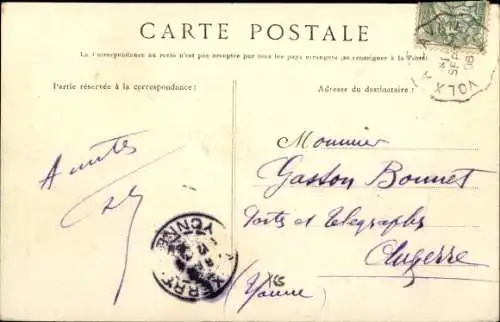 CARTE POSTALE
La Correspondance au recto n'est pas acceptée par tous les pays étrangers (se renseigner à la Poste)
Partie réservée à la correspondance :
Adresse du destinataire :
Monsieur
Gaston Bonnet
Postes et Télégraphes
Auxerre
(Yonne)
Amitiés
VOLX
YONNE